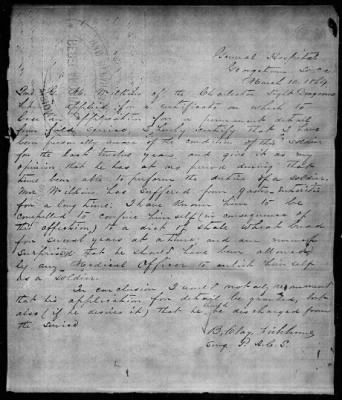 General Hospital
Georgetown
March 10, 186
of the Charleston Light Dragoons
having applied for a certificate on which to
base an application for a permanent detail
from field service, I hereby certify that I have
been personally aware of the condition of this soldier
for the last twelve years and give it as my
opinion that he has at no period during that
time been able to perform the duties of a soldier.
Mr Wilkins has suffered from gastro-
for a long time. I have known him to be
compelled to confine himself (in consequence of
this affection) to a diet of stale wheat bread
for several years at a time, and am
surprised that he should have been allowed
by any Medical Officer to enlist himself
as a soldier.
In conclusion, I would not only recommend
that his application for detail be granted, but
also (if he desires it) that he be discharged from
the service
B. Clay Fishburne
Surg. P. A. C. S.